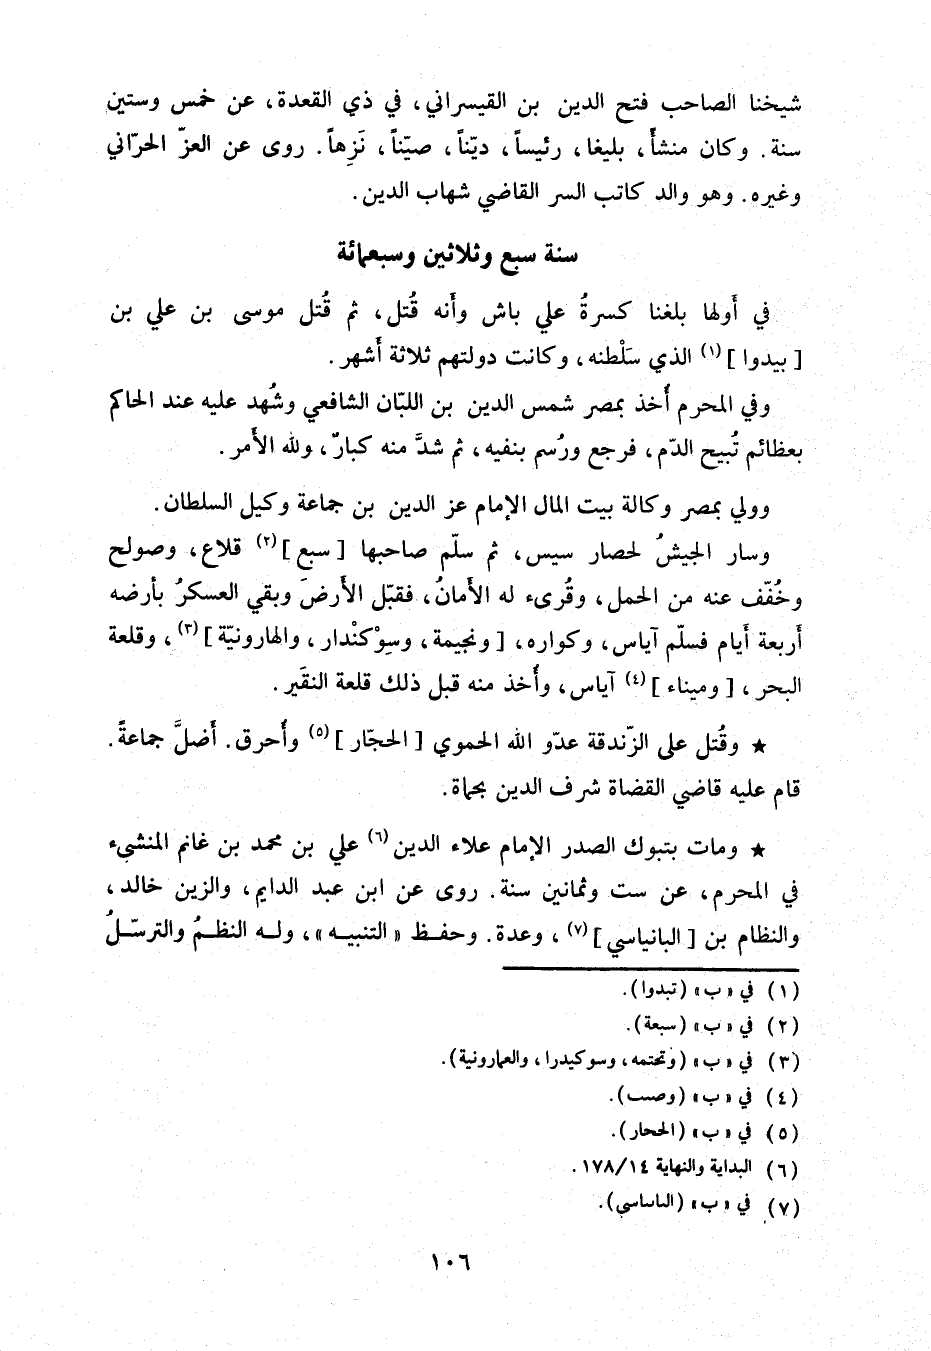 شيخنا الصاحب فتح الدين بن القيسراني، في ذي القعدة، عن خمس وستين
سنة. وكان منشأ، بليغا، رئيساً، ديّناً، صيّناً، نَزِهاً. روى عن العزّ الحرّاني
وغيره. وهو والد كاتب السر القاضي شهاب الدين.
سنة سبع وثلاثين وسبعمائة
في أولها بلغنا كسرةُ علي باش وأنه قُتل، ثم قُتل موسى بن علي بن
[بيدوا](١) الذي سَلْطنه، وكانت دولتهم ثلاثة أشهر.
وفي المحرم أُخذ بمصر شمس الدين بن اللبّان الشافعي وشُهد عليه عند الحاكم
بعظائم تُبيح الدّم، فرجع ورُسم بنفيه، ثم شدَّ منه كبارٌ، ولله الأمر.
وولي بمصر وكالة بيت المال الإمام عز الدين بن جماعة وكيل السلطان.
وسار الجيشُ لحصار سيس، ثم سلّم صاحبها [سبع](٢) قلاع، وصولح
وخُفّف عنه من الحمل، وقُرىء له الأمانُ، فقبّل الأرضَ وبقي العسكرُ بأرضه
أربعة أيام فسلّم آياس، وكواره، [ونجيمة، وسِوْكندار، والهارونيّة](٣)، وقلعة
البحر، [وميناء](٤) آياس، وأُخذ منه قبل ذلك قلعة النقَير.
★ وقُتل على الزّندقة عدّو الله الحموي [الحجّار](٥) وأُحرق. أضلَّ جماعةً.
قام عليه قاضي القضاة شرف الدين بحماة.
★ ومات بتبوك الصدر الإمام علاء الدين(٦) علي بن محمد بن غانم المنشىء
في المحرم، عن ست وثمانين سنة. روى عن ابن عبد الدايم، والزين خالد،
والنظام بن [البانياسي](٧)، وعدة. وحفظ «التنبيه»، وله النظمُ والترسّلُ
(١) في «ب» (تبدوا).
(٢) في «ب» (سبعة).
(٣) في «ب» (وتحتمه، وسوكيدرا، والعمارونية).
(٤) في «ب» (وصىب).
(٥) في «ب» (الححار).
(٦) البداية والنهاية ١٧٨/١٤.
(٧) في «ب» (الىاساسي).
١٠٦